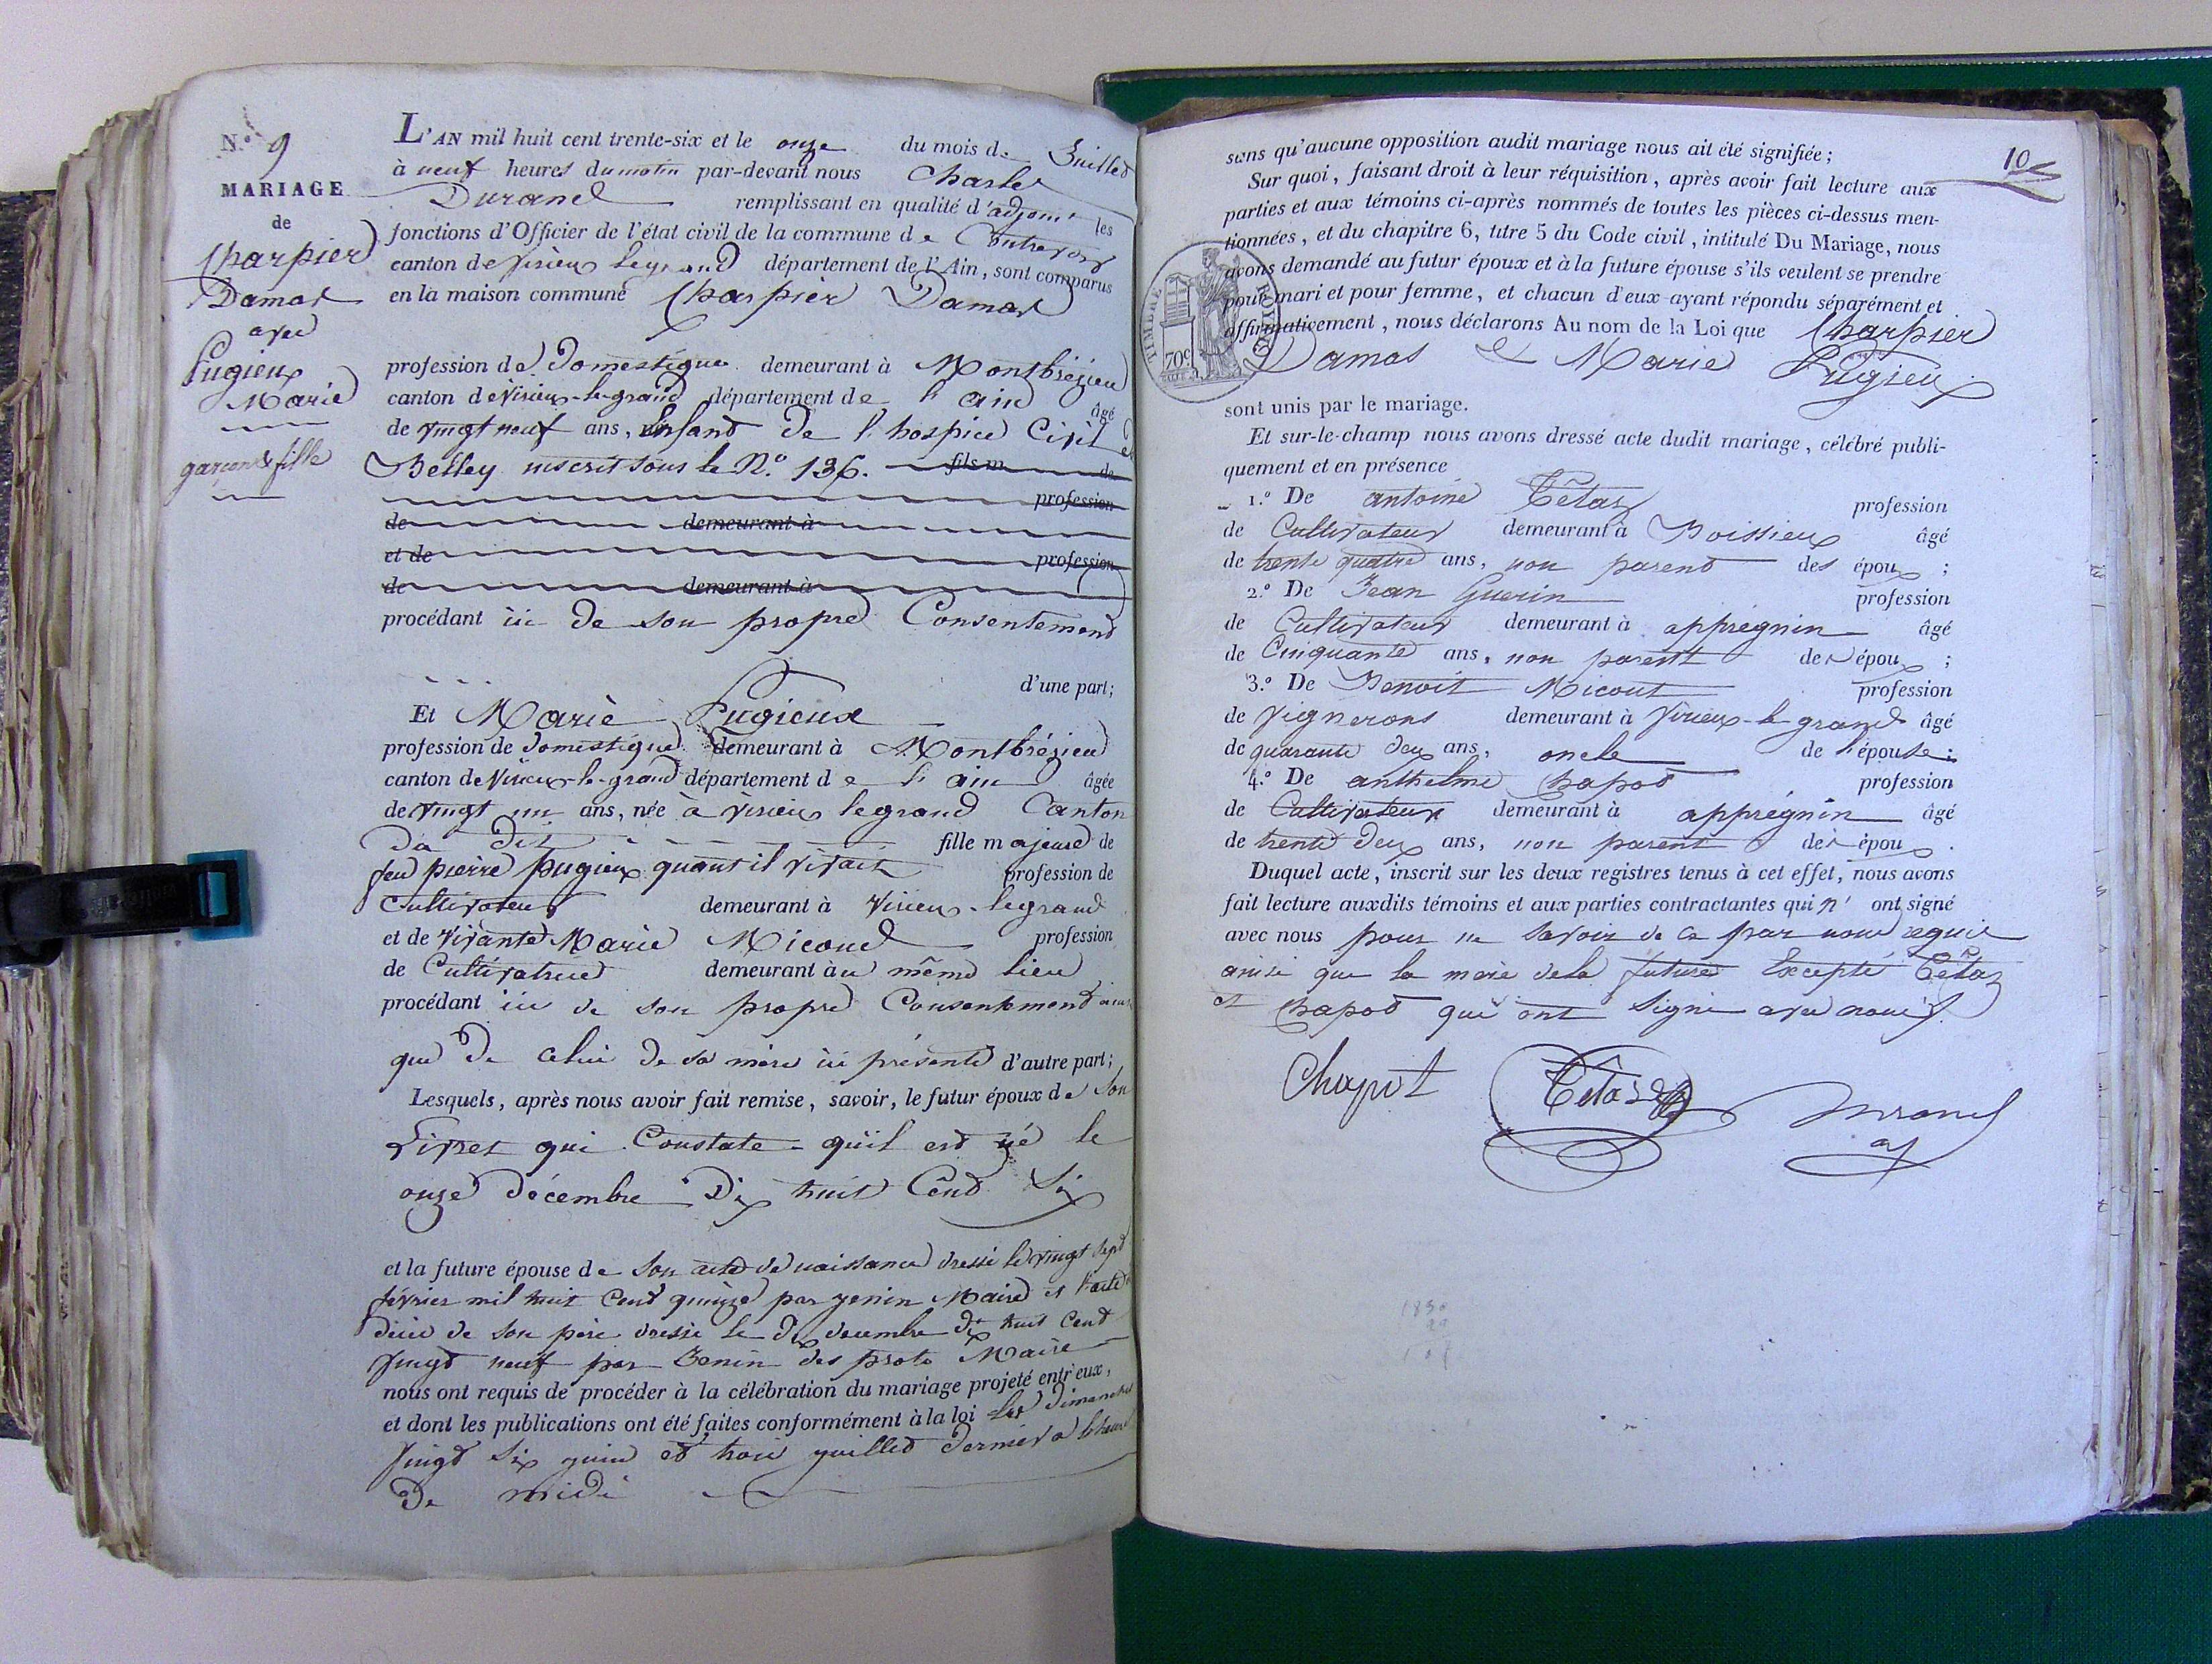 N.º 9
MARIAGE
de
Charpier
Damas
avec
Pugieux
Marie
garçon & fille
L'AN mil huit cent trente-six et le onze du mois de Juillet
à neuf heures du matin par-devant nous Charles
Durand remplissant en qualité d'adjoint les
fonctions d'Officier de l'état civil de la commune de Contrevoz
canton de Virieu legrand département de l'Ain, sont comparus
en la maison commune Charpier Damas
profession de Domestique demeurant à Montbrézieu
canton de Virieu-le-grand département de l'ain âgé
de vingt neuf ans, enfant de l'hospice Civil de
Belley inscrit sous le N.º 136. fils m de
profession
de demeurant à
et de profession
de demeurant à
procédant ici de son propre Consentement
d'une part;
Et Marie Pugieux
profession de domestique demeurant à Montbrézieu
canton de Virieu-le-grand département de l'ain âgée
de vingt un ans, née à Virieu legrand Canton
du dit fille majeure de
feu pierre pugieux quant il vivait profession de
Cultivateur demeurant à Virieu-legrand
et de vivante Marie Micoud profession
de Cultivatrice demeurant au même lieu
procédant ici de son propre Consentement ainsi
que de celui de sa mère ici présente d'autre part;
Lesquels, après nous avoir fait remise, savoir, le futur époux de son
Livret qui Constate qu'il est né le
onze décembre Dix huit Cent Six
et la future épouse de son acte de naissance dressé le vingt sept
février mil huit Cent quinze par genin Maire et l'acte
décié de son père dressé le Dix decembre dix huit Cent
vingt neuf par Genin des prots Maire
nous ont requis de procéder à la célébration du mariage projeté entr'eux,
et dont les publications ont été faites conformément à la loi les dimanches
vingt six juin et trois juillet dernier a l'heure
De midi
10
sans qu'aucune opposition audit mariage nous ait été signifiée;
Sur quoi, faisant droit à leur réquisition, après avoir fait lecture aux
parties et aux témoins ci-après nommés de toutes les pièces ci-dessus men-
tionnées, et du chapitre 6, titre 5 du Code civil, intitulé Du Mariage, nous
avons demandé au futur époux et à la future épouse s'ils veulent se prendre
pour mari et pour femme, et chacun d'eux ayant répondu séparément et
affirmativement, nous déclarons Au nom de la Loi que Charpier
Damas & Marie Pugieux
TIMBRE ROYAL
70c
sont unis par le mariage.
Et sur-le-champ nous avons dressé acte dudit mariage, célébré publi-
quement et en présence
1.º De antoine Têtaz profession
de Cultivateur demeurant à Boissieux âgé
de trente quatre ans, non parent des époux;
2.º De Jean Guerin profession
de Cultivateur demeurant à apprégnin âgé
de Cinquante ans, non parent des époux;
3.º De Benoit Micout profession
de Vignerons demeurant à Virieux-le grand âgé
de quarante deux ans, oncle de l'épouse;
4.º De anthelme Chapot profession
de Cultivateur demeurant à apprégnin âgé
de trente deux ans, non parent des époux.
Duquel acte, inscrit sur les deux registres tenus à cet effet, nous avons
fait lecture auxdits témoins et aux parties contractantes qui n' ont signé
avec nous pour ne savoir de ce par nous requis
ainsi que la mère dela future Excepté Têtaz
et Chapot qui ont signé avec nous
Chapot Têtaz Durand